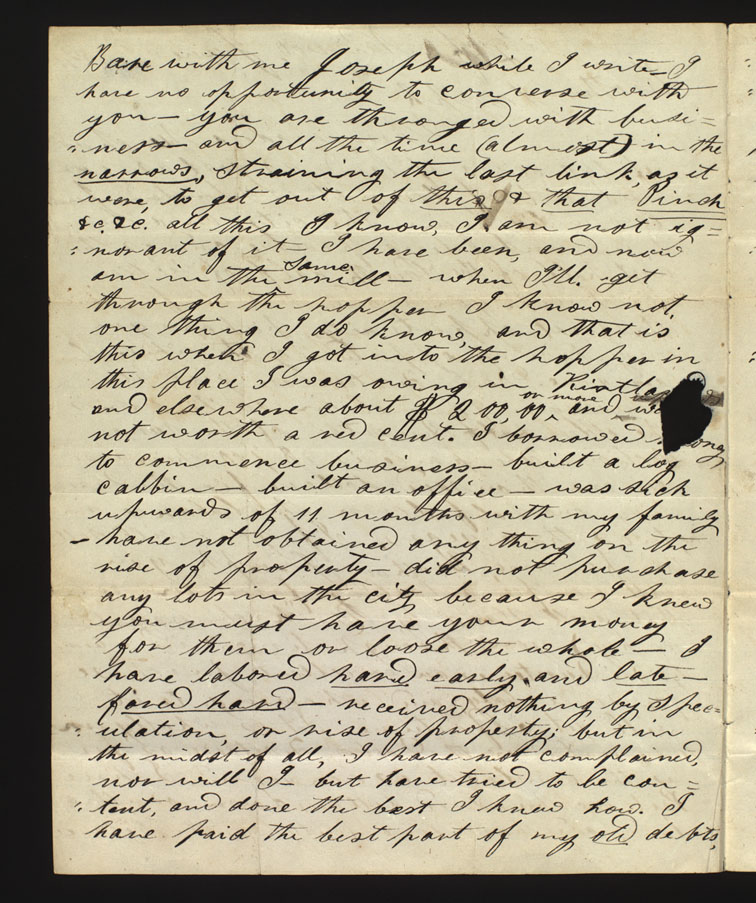 Bare with me Joseph while I write— I
have no opportunity to converse with
you— you are thronged with busi=
=ness— and all the time (almost) in the
narrows, straining the last link, as it
were, to get out of this & that Pinch
&c. &c. all this I know, I am not ig=
=norant of it— I have been, and now
am in the same mill— when I'll get
through the hopper I know not,
one thing I do know, and that is
this when I got into the hopper in
this place I was owing in Kirtla
and elsewhere about $200,00, or more and w
not worth a red cent. I borrowed
to commence business— built a log
cabbin— built an office— was sick
upwards of 11 months with my family
— have not obtained any thing on the
rise of property— did not purchase
any lots in the city because I knew
you must have your money
for them or loose the whole— I
have labored hard early and late—
fared hard— received nothing by spec=
=ulation, or rise of property; but in
the midst of all, I have not complained,
nor will I— but have tried to be con=
=tent, and done the best I knew how. I
have paid the best part of my old debts,